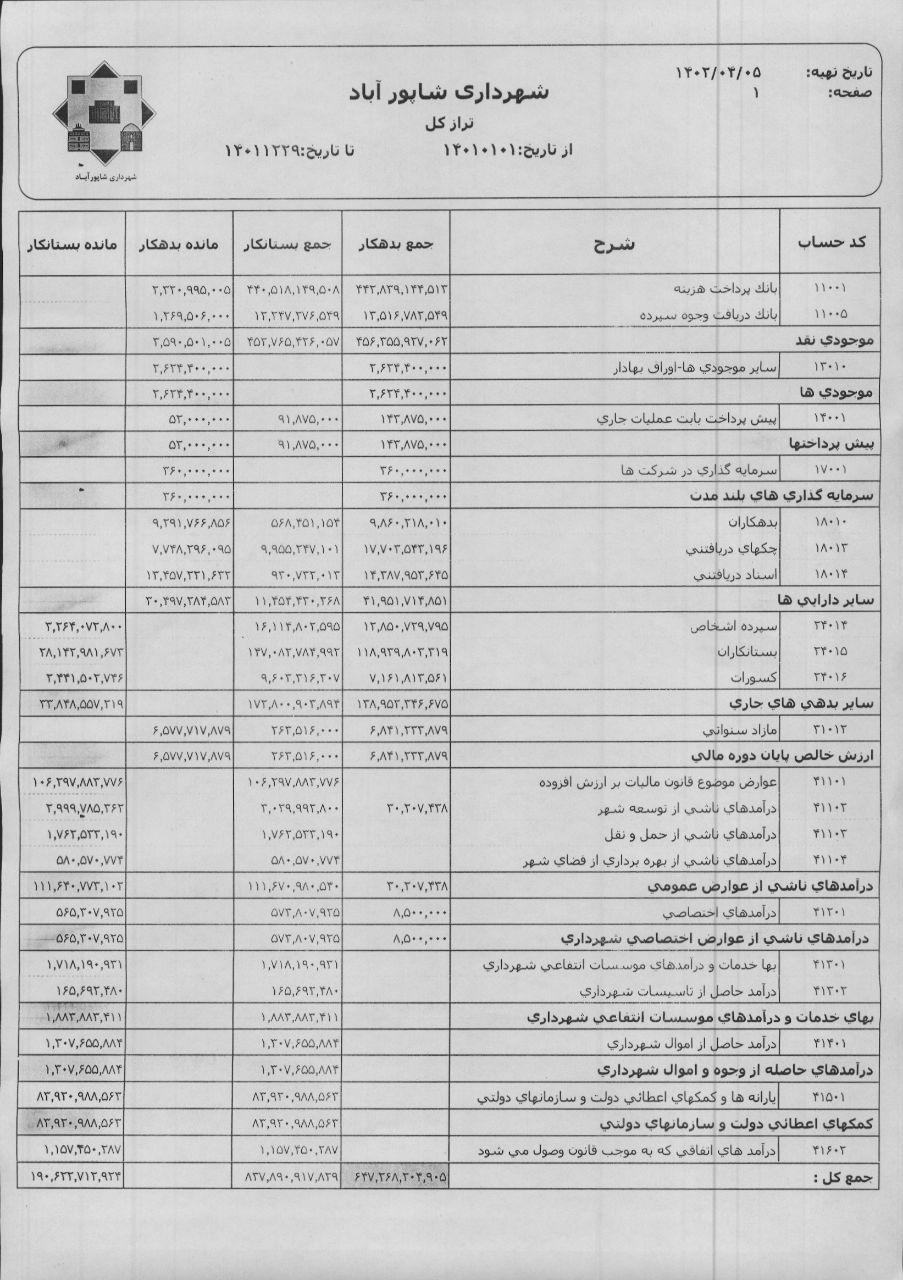 تاریخ تهیه: ۱۴۰۲/۰۴/۰۵
صفحه: ۱
شهرداری شاپور آباد
تراز کل
از تاریخ:۱۴۰۱۰۱۰۱ تا تاریخ:۱۴۰۱۱۲۲۹
شهرداری شاپورآباد
کد حساب شرح جمع بدهکار جمع بستانکار مانده بدهکار مانده بستانکار
۱۱۰۰۱ بانك پرداخت هزينه ۴۴۲,۸۳۹,۱۴۴,۵۱۳ ۴۴۰,۵۱۸,۱۴۹,۵۰۸ ۲,۳۲۰,۹۹۵,۰۰۵
۱۱۰۰۵ بانك دريافت وجوه سپرده ۱۳,۵۱۶,۷۸۲,۵۴۹ ۱۲,۲۴۷,۲۷۶,۵۴۹ ۱,۲۶۹,۵۰۶,۰۰۰
موجودي نقد ۴۵۶,۳۵۵,۹۲۷,۰۶۲ ۴۵۲,۷۶۵,۴۲۶,۰۵۷ ۳,۵۹۰,۵۰۱,۰۰۵
۱۳۰۱۰ ساير موجودي ها-اوراق بهادار ۲,۶۲۴,۴۰۰,۰۰۰ ۲,۶۲۴,۴۰۰,۰۰۰
موجودي ها ۲,۶۲۴,۴۰۰,۰۰۰ ۲,۶۲۴,۴۰۰,۰۰۰
۱۴۰۰۱ پيش پرداخت بابت عمليات جاري ۱۴۳,۸۷۵,۰۰۰ ۹۱,۸۷۵,۰۰۰ ۵۲,۰۰۰,۰۰۰
پيش پرداختها ۱۴۳,۸۷۵,۰۰۰ ۹۱,۸۷۵,۰۰۰ ۵۲,۰۰۰,۰۰۰
۱۷۰۰۱ سرمايه گذاري در شركت ها ۳۶۰,۰۰۰,۰۰۰ ۳۶۰,۰۰۰,۰۰۰
سرمايه گذاري هاي بلند مدت ۳۶۰,۰۰۰,۰۰۰ ۳۶۰,۰۰۰,۰۰۰
۱۸۰۱۰ بدهكاران ۹,۸۶۰,۲۱۸,۰۱۰ ۵۶۸,۴۵۱,۱۵۴ ۹,۲۹۱,۷۶۶,۸۵۶
۱۸۰۱۳ چكهاي دريافتني ۱۷,۷۰۳,۵۴۳,۱۹۶ ۹,۹۵۵,۲۴۷,۱۰۱ ۷,۷۴۸,۲۹۶,۰۹۵
۱۸۰۱۴ اسناد دريافتني ۱۴,۳۸۷,۹۵۳,۶۴۵ ۹۳۰,۷۳۲,۰۱۳ ۱۳,۴۵۷,۲۲۱,۶۳۲
ساير دارايي ها ۴۱,۹۵۱,۷۱۴,۸۵۱ ۱۱,۴۵۴,۴۳۰,۲۶۸ ۳۰,۴۹۷,۲۸۴,۵۸۳
۲۴۰۱۴ سپرده اشخاص ۱۲,۸۵۰,۷۲۹,۷۹۵ ۱۶,۱۱۴,۸۰۲,۵۹۵ ۳,۲۶۴,۰۷۲,۸۰۰
۲۴۰۱۵ بستانكاران ۱۱۸,۹۳۹,۸۰۳,۳۱۹ ۱۴۷,۰۸۲,۷۸۴,۹۹۲ ۲۸,۱۴۲,۹۸۱,۶۷۳
۲۴۰۱۶ كسورات ۷,۱۶۱,۸۱۳,۵۶۱ ۹,۶۰۳,۳۱۶,۳۰۷ ۲,۴۴۱,۵۰۲,۷۴۶
ساير بدهي هاي جاري ۱۳۸,۹۵۲,۳۴۶,۶۷۵ ۱۷۲,۸۰۰,۹۰۳,۸۹۴ ۳۳,۸۴۸,۵۵۷,۲۱۹
۳۱۰۱۲ مازاد سنواتي ۶,۸۴۱,۲۳۳,۸۷۹ ۲۶۳,۵۱۶,۰۰۰ ۶,۵۷۷,۷۱۷,۸۷۹
ارزش خالص پايان دوره مالي ۶,۸۴۱,۲۳۳,۸۷۹ ۲۶۳,۵۱۶,۰۰۰ ۶,۵۷۷,۷۱۷,۸۷۹
۴۱۱۰۱ عوارض موضوع قانون ماليات بر ارزش افزوده ۱۰۶,۲۹۷,۸۸۳,۷۷۶ ۱۰۶,۲۹۷,۸۸۳,۷۷۶
۴۱۱۰۲ درآمدهاي ناشي از توسعه شهر ۳۰,۲۰۷,۴۳۸ ۳,۰۲۹,۹۹۲,۸۰۰ ۲,۹۹۹,۷۸۵,۳۶۲
۴۱۱۰۳ درآمدهاي ناشي از حمل و نقل ۱,۷۶۲,۵۳۳,۱۹۰ ۱,۷۶۲,۵۳۳,۱۹۰
۴۱۱۰۴ درآمدهاي ناشي از بهره برداري از فضاي شهر ۵۸۰,۵۷۰,۷۷۴ ۵۸۰,۵۷۰,۷۷۴
درآمدهاي ناشي از عوارض عمومي ۳۰,۲۰۷,۴۳۸ ۱۱۱,۶۷۰,۹۸۰,۵۴۰ ۱۱۱,۶۴۰,۷۷۳,۱۰۲
۴۱۲۰۱ درآمدهاي اختصاصي ۸,۵۰۰,۰۰۰ ۵۷۳,۸۰۷,۹۲۵ ۵۶۵,۳۰۷,۹۲۵
درآمدهاي ناشي از عوارض اختصاصي شهرداري ۸,۵۰۰,۰۰۰ ۵۷۳,۸۰۷,۹۲۵ ۵۶۵,۳۰۷,۹۲۵
۴۱۳۰۱ بها خدمات و درآمدهاي موسسات انتفاعي شهرداري ۱,۷۱۸,۱۹۰,۹۳۱ ۱,۷۱۸,۱۹۰,۹۳۱
۴۱۳۰۲ درآمد حاصل از تاسيسات شهرداري ۱۶۵,۶۹۲,۴۸۰ ۱۶۵,۶۹۲,۴۸۰
بهاي خدمات و درآمدهاي موسسات انتفاعي شهرداري ۱,۸۸۳,۸۸۳,۴۱۱ ۱,۸۸۳,۸۸۳,۴۱۱
۴۱۴۰۱ درآمد حاصل از اموال شهرداري ۱,۳۰۷,۶۵۵,۸۸۴ ۱,۳۰۷,۶۵۵,۸۸۴
درآمدهاي حاصله از وجوه و اموال شهرداري ۱,۳۰۷,۶۵۵,۸۸۴ ۱,۳۰۷,۶۵۵,۸۸۴
۴۱۵۰۱ يارانه ها و كمكهاي اعطائي دولت و سازمانهاي دولتي ۸۳,۹۲۰,۹۸۸,۵۶۳ ۸۳,۹۲۰,۹۸۸,۵۶۳
كمكهاي اعطائي دولت و سازمانهاي دولتي ۸۳,۹۲۰,۹۸۸,۵۶۳ ۸۳,۹۲۰,۹۸۸,۵۶۳
۴۱۶۰۲ درآمد هاي اتفاقي كه به موجب قانون وصول مي شود ۱,۱۵۷,۴۵۰,۲۸۷ ۱,۱۵۷,۴۵۰,۲۸۷
جمع كل : ۶۴۷,۲۶۸,۲۰۴,۹۰۵ ۸۳۷,۸۹۰,۹۱۷,۸۲۹ ۱۹۰,۶۲۲,۷۱۲,۹۲۴